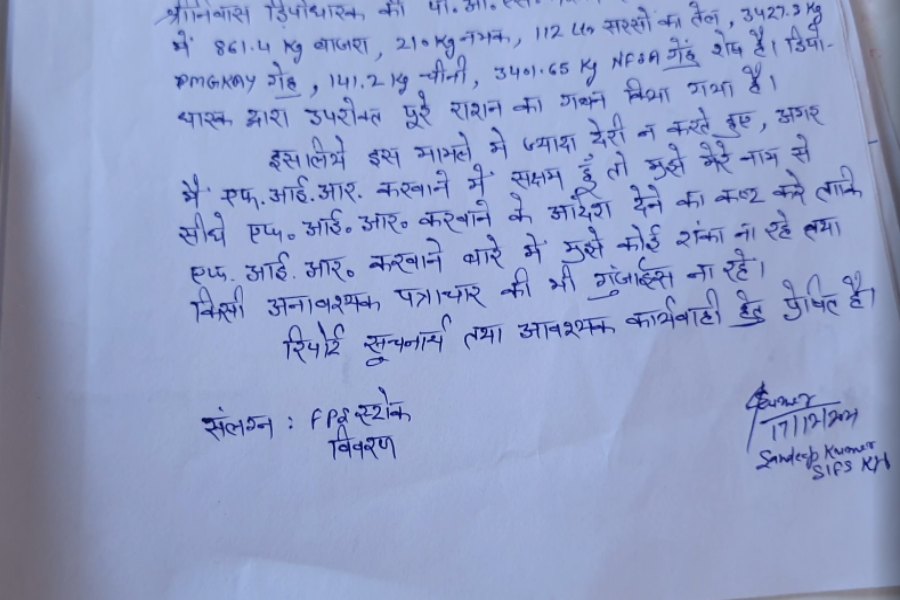 श्रीनिवास डिपोधारक की पी.ओ.एस.
में 861.4 kg बाजरा, 210 kg नमक, 112 Ltr सरसों का तेल, 3427.3 kg
PMGKAY गेहूं, 141.2 kg चीनी, 3401.65 kg NFSA गेहूं शेष है। डिपो-
धारक द्वारा उपरोक्त पूरे राशन का गबन किया गया है।
इसलिये इस मामले में ज्यादा देरी न करते हुए, अगर
मैं एफ.आई.आर. करवाने में सक्षम हूँ तो मुझे मेरे नाम से
सीधे एफ.आई.आर. करवाने के आदेश देने का कष्ट करे ताकि
एफ.आई.आर. करवाने बारे में मुझे कोई शंका ना रहे तथा
किसी अनावश्यक पत्राचार की भी गुंजाईस ना रहे।
रिपोर्ट सूचनार्थ तथा आवश्यक कार्यवाही हेतु प्रेषित है।
संलग्न : FPS स्टोक
विवरण
17/12/2021
Sandeep Kumar
SIFS